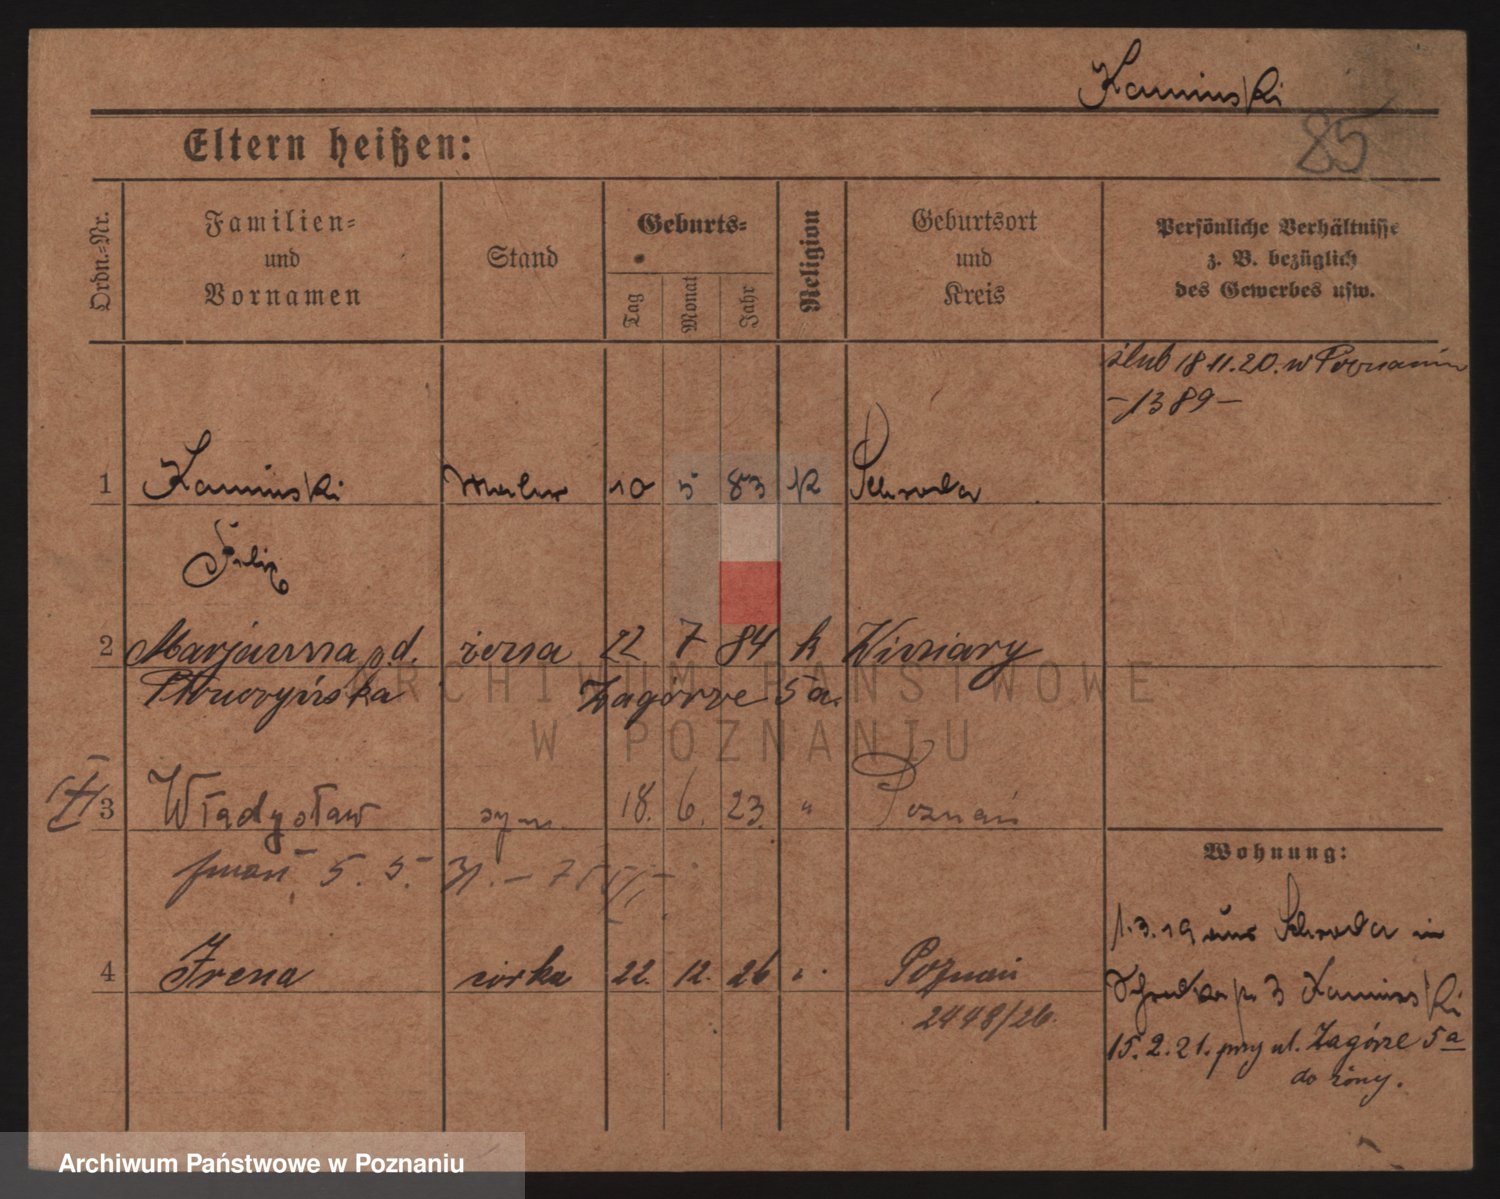 Kaminski
85
Eltern heißen:
Ordn.-Nr.
Familien-
und
Vornamen
Stand
Geburts-
Tag
Monat
Jahr
Religion
Geburtsort
und
Kreis
Persönliche Verhältnisse
z. B. bezüglich
des Gewerbes usw.
ślub 18.11.20. w Poznaniu
-1389-
1 Kaminski Maler 10 5 83 k Schroda
Felix
2 Marjanna p.d. żona 22 7 84 k Winiary
Zagórze 5a.
3 Władysław syn 18. 6. 23. " Poznań
zmarł 5. 5. 31.
4 Irena córka 22. 12. 26 " Poznań
2448/26.
Wohnung:
1.3.19 aus Schroda in
3 Kaminski
15.2.21. przy ul. Zagórze 5a
do żony.
ARCHIWUM PAŃSTWOWE
W POZNANIU
Archiwum Państwowe w Poznaniu